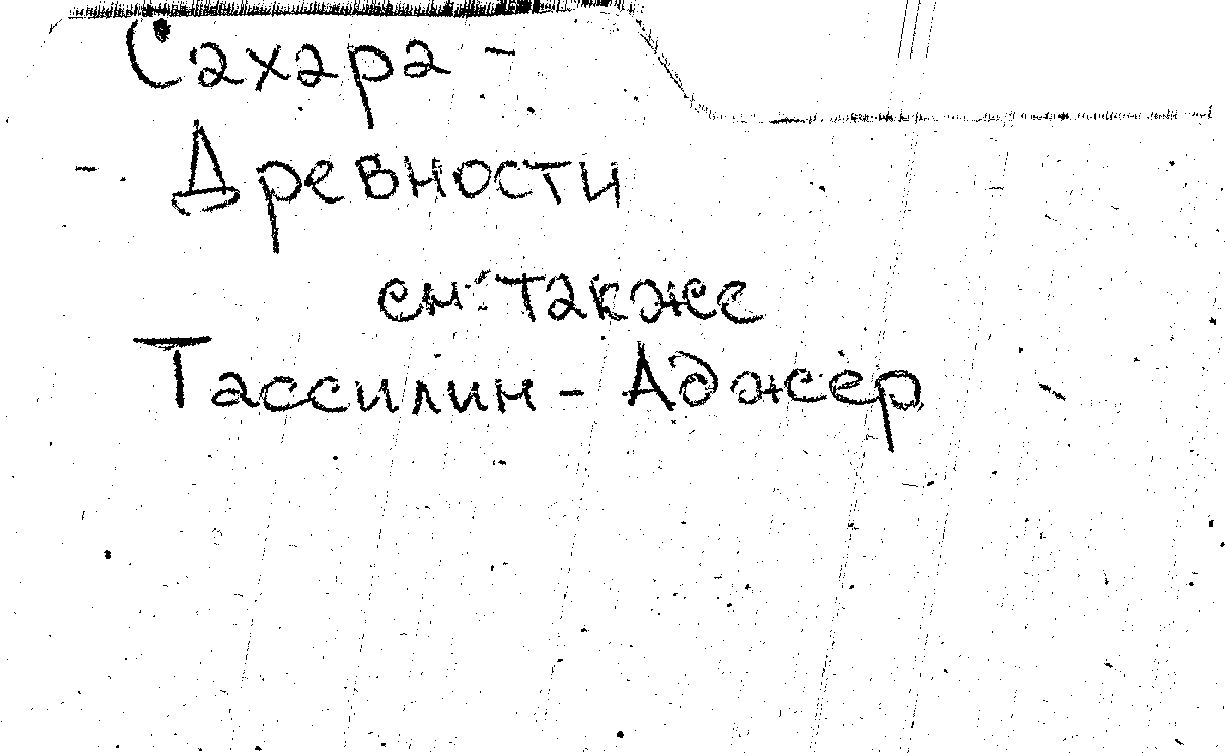 Сахара -
- Древности
см. также
Тассилин - Аджер